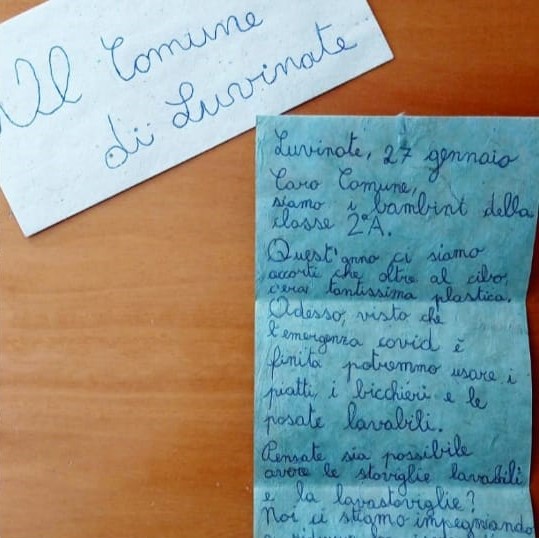 Al Comune
di Luvinate
Luvinate, 27 gennaio
Caro Comune,
siamo i bambini della
classe 2ªA.
Quest'anno ci siamo
accorti che oltre al cibo,
c'era tantissima plastica.
Adesso, visto che
l'emergenza covid è
finita potremmo usare i
piatti, i bicchieri e le
posate lavabili.
Pensate sia possibile
avere le stoviglie lavabili
e la lavastoviglie?
Noi ci stiamo impegnando